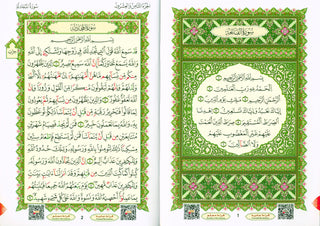 سُورَةُ الفَاتِحَةِ
بِسْمِ اللَّهِ الرَّحْمَٰنِ الرَّحِيمِ
الْحَمْدُ لِلَّهِ رَبِّ الْعَالَمِينَ
الرَّحْمَٰنِ الرَّحِيمِ مَالِكِ يَوْمِ الدِّينِ
إِيَّاكَ نَعْبُدُ وَإِيَّاكَ نَسْتَعِينُ
اهْدِنَا الصِّرَاطَ الْمُسْتَقِيمَ
صِرَاطَ الَّذِينَ أَنْعَمْتَ عَلَيْهِمْ غَيْرِ الْمَغْضُوبِ
عَلَيْهِمْ وَلَا الضَّالِّينَ
١
سُورَةُ المُجَادلَةِ
بِسْمِ اللَّهِ الرَّحْمَٰنِ الرَّحِيمِ
قَدْ سَمِعَ اللَّهُ قَوْلَ الَّتِي تُجَادِلُكَ فِي زَوْجِهَا وَتَشْتَكِي إِلَى اللَّهِ
وَاللَّهُ يَسْمَعُ تَحَاوُرَكُمَا إِنَّ اللَّهَ سَمِيعٌ بَصِيرٌ ١ الَّذِينَ يُظَاهِرُونَ
مِنكُم مِّن نِّسَائِهِم مَّا هُنَّ أُمَّهَاتِهِمْ إِنْ أُمَّهَاتُهُمْ إِلَّا اللَّائِي وَلَدْنَهُمْ
وَإِنَّهُمْ لَيَقُولُونَ مُنكَرًا مِّنَ الْقَوْلِ وَزُورًا وَإِنَّ اللَّهَ
لَعَفُوٌّ غَفُورٌ ٢ وَالَّذِينَ يُظَاهِرُونَ مِن نِّسَائِهِمْ ثُمَّ يَعُودُونَ
لِمَا قَالُوا فَتَحْرِيرُ رَقَبَةٍ مِّن قَبْلِ أَن يَتَمَاسَّا ذَٰلِكُمْ تُوعَظُونَ
بِهِ وَاللَّهُ بِمَا تَعْمَلُونَ خَبِيرٌ ٣ فَمَن لَّمْ يَجِدْ فَصِيَامُ شَهْرَيْنِ
مُتَتَابِعَيْنِ مِن قَبْلِ أَن يَتَمَاسَّا فَمَن لَّمْ يَسْتَطِعْ فَإِطْعَامُ سِتِّينَ
مِسْكِينًا ذَٰلِكَ لِتُؤْمِنُوا بِاللَّهِ وَرَسُولِهِ وَتِلْكَ حُدُودُ اللَّهِ
وَلِلْكَافِرِينَ عَذَابٌ أَلِيمٌ ٤ إِنَّ الَّذِينَ يُحَادُّونَ اللَّهَ وَرَسُولَهُ
كُبِتُوا كَمَا كُبِتَ الَّذِينَ مِن قَبْلِهِمْ وَقَدْ أَنزَلْنَا آيَاتٍ بَيِّنَاتٍ
وَلِلْكَافِرِينَ عَذَابٌ مُّهِينٌ ٥ يَوْمَ يَبْعَثُهُمُ اللَّهُ جَمِيعًا فَيُنَبِّئُهُم
بِمَا عَمِلُوا أَحْصَاهُ اللَّهُ وَنَسُوهُ وَاللَّهُ عَلَىٰ كُلِّ شَيْءٍ شَهِيدٌ ٦
٢